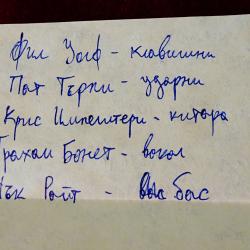 Фил Уолф - клавишни
Пат Търпи - ударни
Крис Импелитери - китара
Грахам Бонет - вокал
Чък Райт - бас